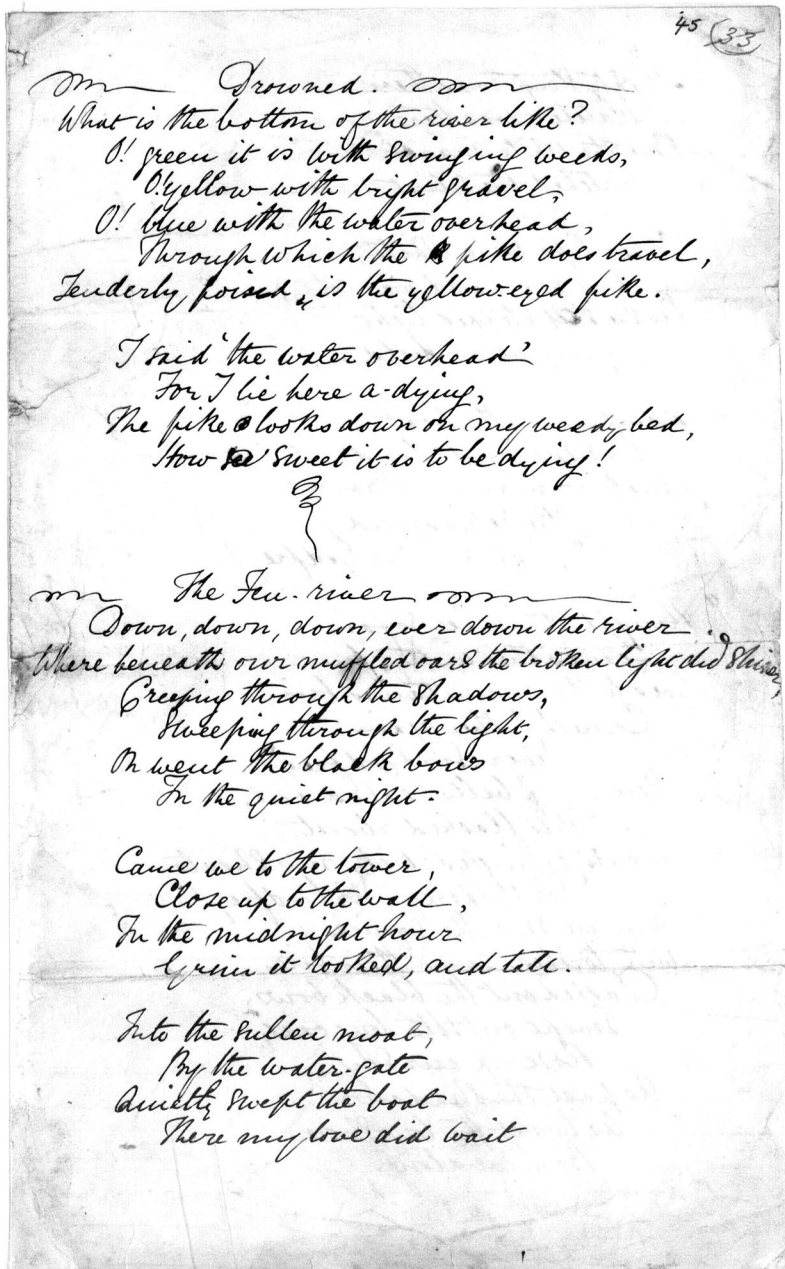 45 (33)
Drowned.
What is the bottom of the river like?
O! green it is with swinging weeds,
O! yellow with bright gravel,
O! blue with the water overhead,
Through which the pike does travel,
Tenderly poised, is the yellow-eyed pike.
I said 'the water overhead'
For I lie here a-dying,
The pike looks down on my weedy bed,
How sweet it is to be dying!
The Fen-river
Down, down, down, ever down the river
Where beneath our muffled oars the broken light did shiver,
Creeping through the shadows,
Sweeping through the light,
On went the black bows
In the quiet night.
Came we to the tower,
Close up to the wall,
In the midnight hour
Grim it looked, and tall.
Into the sullen moat,
By the water-gate
Quietly swept the boat
There my love did wait